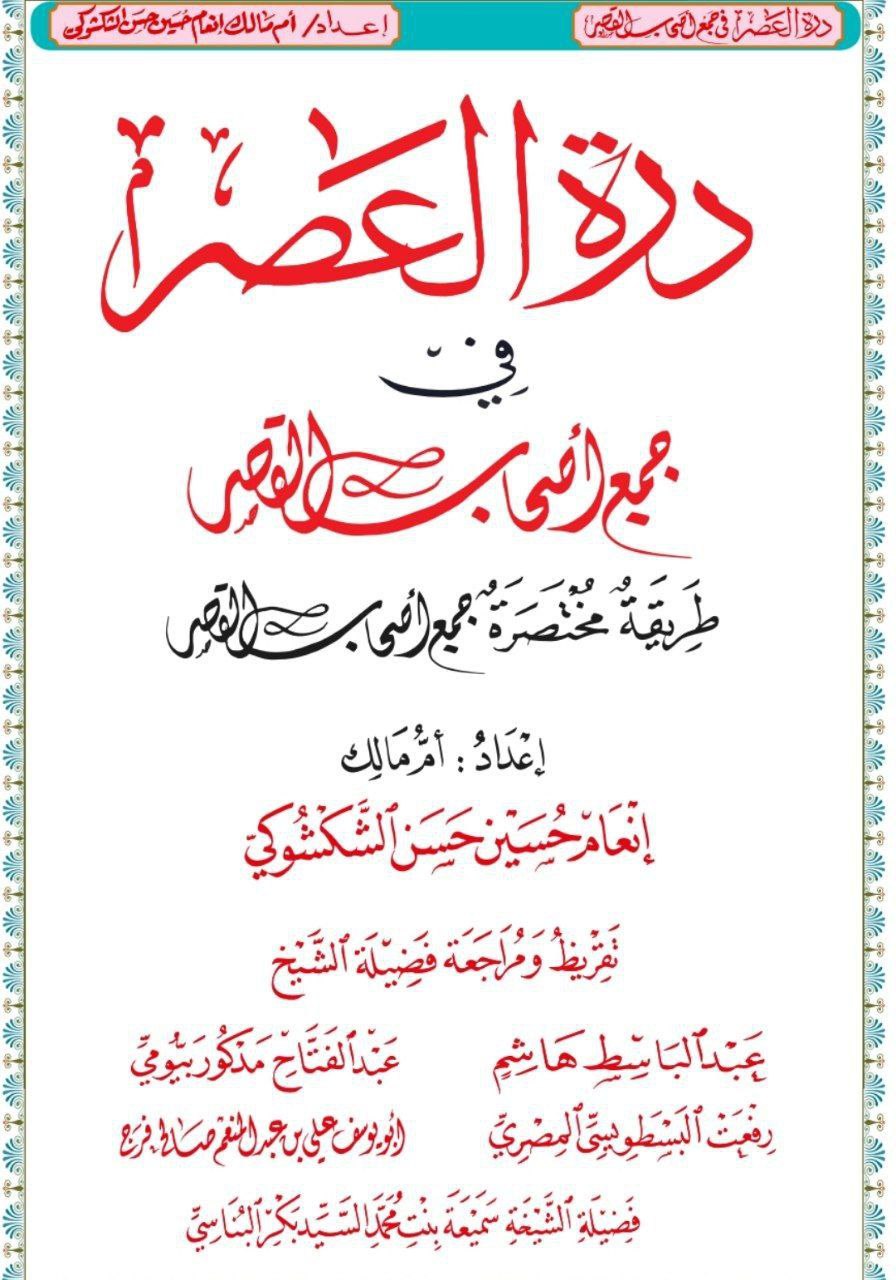 درة العصر في جمع أصحاب القصر
إعداد/ أم مالك إنعام حسين حسن الشكشوكي
درة العصر
في
جمع أصحاب القصر
طَرِيقَةٌ مُخْتَصَرَةٌ جمع أصحاب القصر
إعْدَادُ : أمُّ مَالِك
إنْعَام حُسَيْن حَسَن ٱلشَّكْشُوكِيّ
تَقْرِيظُ وَمُرَاجَعَة فَضِيلَة ٱلشَّيْخ
عَبْد ٱلبَاسِط هَاشِم عَبْد ٱلفَتَّاح مَدْكُور بَيُّومِي
رِفْعَت ٱلبَسْطَوِيسِيّ ٱلمِصْرِيّ أبو يوسف علي بن عبد المنعم صالح فرج
فَضِيلَةِ ٱلشَّيْخَةِ سَمِيعَةَ بِنْتِ مُحَمَّد ٱلسَّيِّد بَكْر ٱلبَنَاسِيِّ